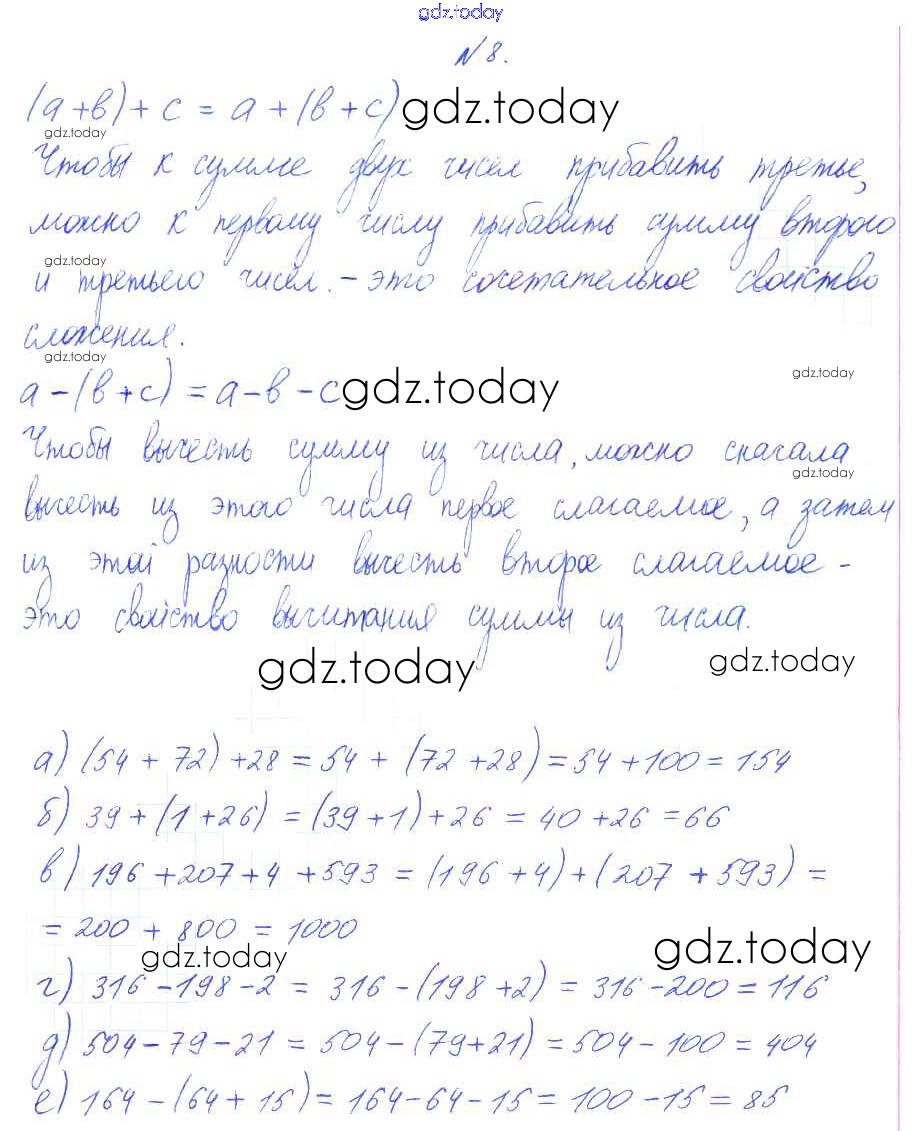 gdz.today
№ 8.
(а+в)+с = а+(в+с) gdz.today
gdz.today
Чтобы к сумме двух чисел прибавить третье,
можно к первому числу прибавить сумму второго
gdz.today
и третьего чисел. – это сочетательное свойство
сложения.
gdz.today
gdz.today
а-(в+с) = а-в-с gdz.today
Чтобы вычесть сумму из числа, можно сначала
gdz.today
вычесть из этого числа первое слагаемое, а затем
из этой разности вычесть второе слагаемое -
это свойство вычитания суммы из числа.
gdz.today gdz.today
а) (54 + 72) +28 = 54 + (72 +28) = 54 +100 = 154
б) 39 + (1 +26) = (39 +1) +26 = 40 +26 = 66
в) 196 +207 +4 +593 = (196 +4) + (207 +593) =
= 200 + 800 = 1000
gdz.today gdz.today
г) 316 -198 -2 = 316 -(198 +2) = 316 -200 = 116
д) 504 -79 -21 = 504 -(79+21) = 504 - 100 = 404
е) 164 -(64 + 15) = 164 -64 -15 = 100 -15 = 85